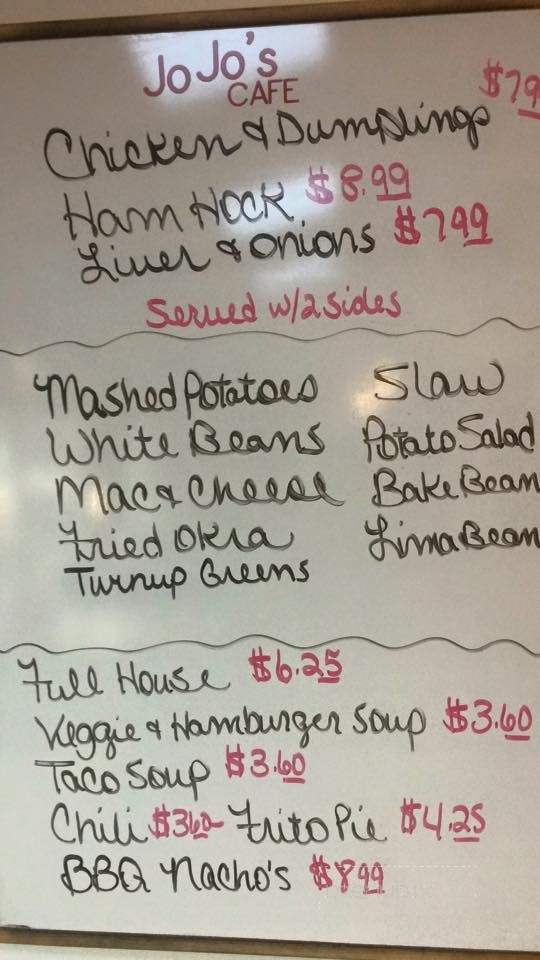 JoJo's
CAFE
Chicken & Dumplings $79
Ham Hock $8.99
Liver & Onions $799
Served w/2 sides
Mashed Potatoes Slaw
White Beans Potato Salad
Mac & Cheese Bake Bean
Fried Okra Lima Bean
Turnup Greens
Full House $6.25
Veggie & Hamburger Soup $3.60
Taco Soup $3.60
Chili $360- Frito Pie $4.25
BBQ Nacho's $899